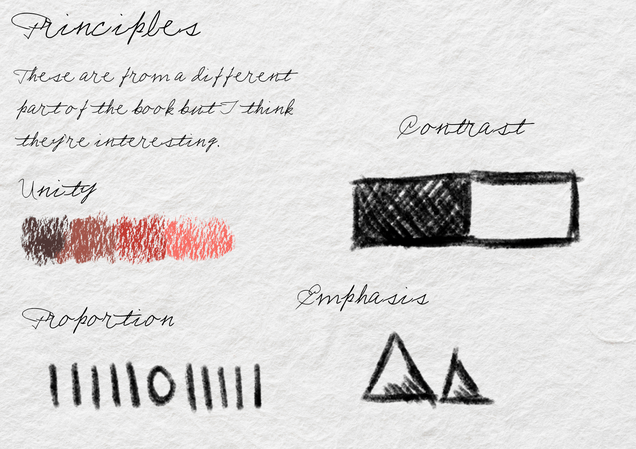 Principles
These are from a different
part of the book but I think
they're interesting.
Contrast
Unity
Emphasis
Proportion